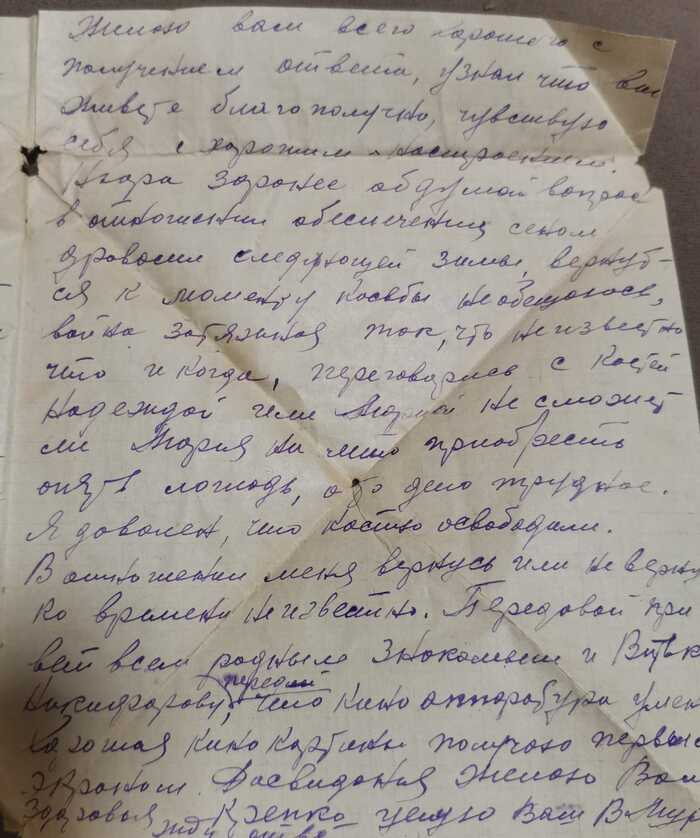 Желаю вам всего хорошего с
получением ответа, узнал что вы
живете благополучно, чувствую
себя с хорошим настроением.
заранее обдумай вопрос
в отношении обеспечения сеном
дровами следующей зимы, вернуть-
ся к моменту косьбы не обещаюсь,
война затяжная так, что неизвестно
что и когда, переговорись с Костей
Надеждой или не сможет
ли Мария на что приобресть
опять лошадь, а то дело трудное.
Я доволен, что Костю освободили.
В отношении меня вернусь или не верну
ко времени неизвестно. Передавай при
вет всем родным знакомым и
передай
Никифорову, что кино аппаратура
хорошая кино картины получаю первым
экраном. Досвидания Желаю Вам
Здоровья Крепко целую Вам В.
жду